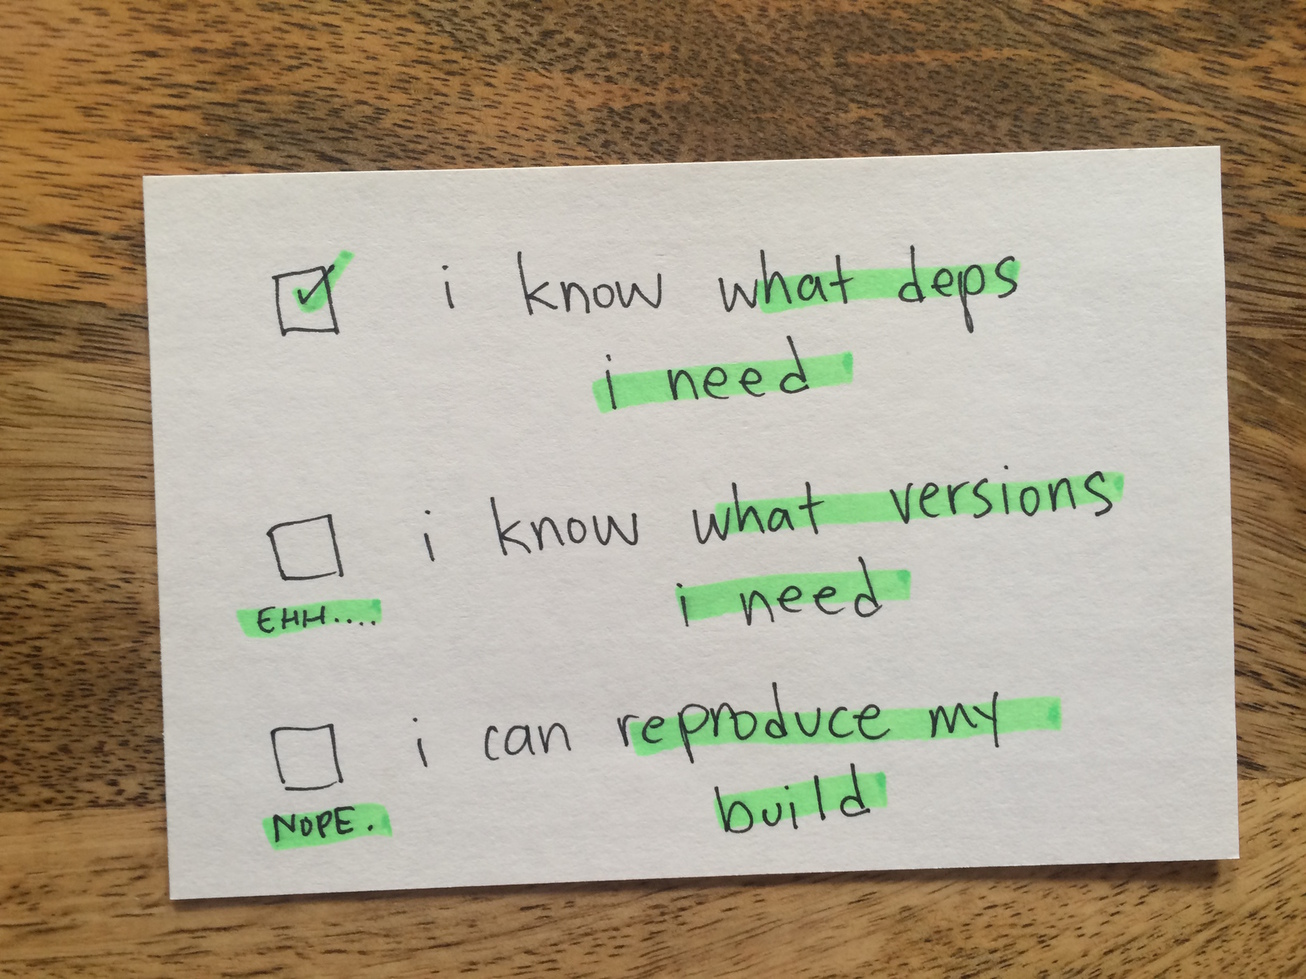 i know what deps
i need
i know what versions
i need
EHH....
i can reproduce my
build
NOPE.